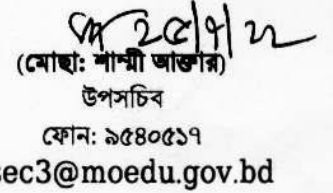 ২৫/৭/২২
(মোছা: শাম্মী আক্তার)
উপসচিব
ফোন: ৯৫৪০৫১৭
sec3@moedu.gov.bd